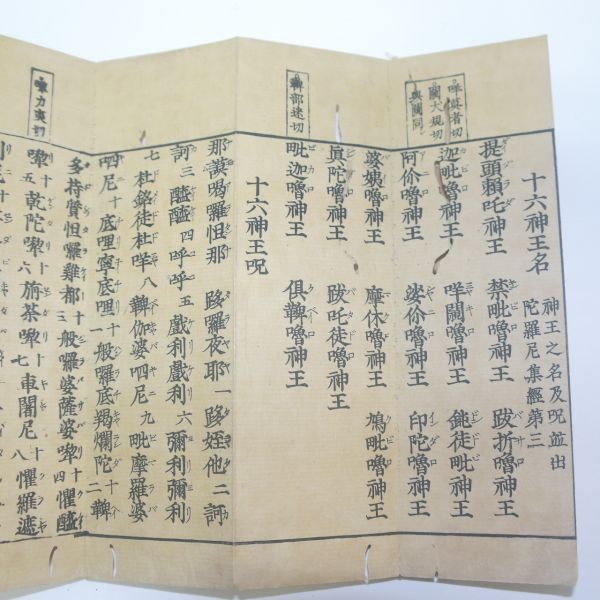 十六神王名
神王之名及呪並出
陀羅尼集經第三
提頭賴吒神王 禁毗嚕神王 跋折嚕神王
迦毗嚕神王 咩闕嚕神王 鈋徒毗神王
阿伱嚕神王 娑伱嚕神王 印陀嚕神王
婆姨嚕神王 摩休嚕神王 鳩毗嚕神王
眞陀嚕神王 跋吒徒嚕神王
毗迦嚕神王 俱鞞嚕神王
十六神王呪
那謨喝囉怛那 跢囉夜耶一 跢姪他二 訶
訶三 醯醯四 呼呼五 戲利戲利六 彌利彌利
七 杜銘徒杜咩八 鞞伽婆呬尼九 毗摩羅婆
呬尼十 底哩寧底哩十一 般羅底羯爛陀十二 鞞
多持質怛囉雞都十三 般囉婆薩婆㗚十四 懼醯
㗚十五 乾陀㗚十六 旃茶㗚十七 車闍尼十八 懼羅遮
與闕同
闕犬規切
鞞部迷切
㗚力夷切